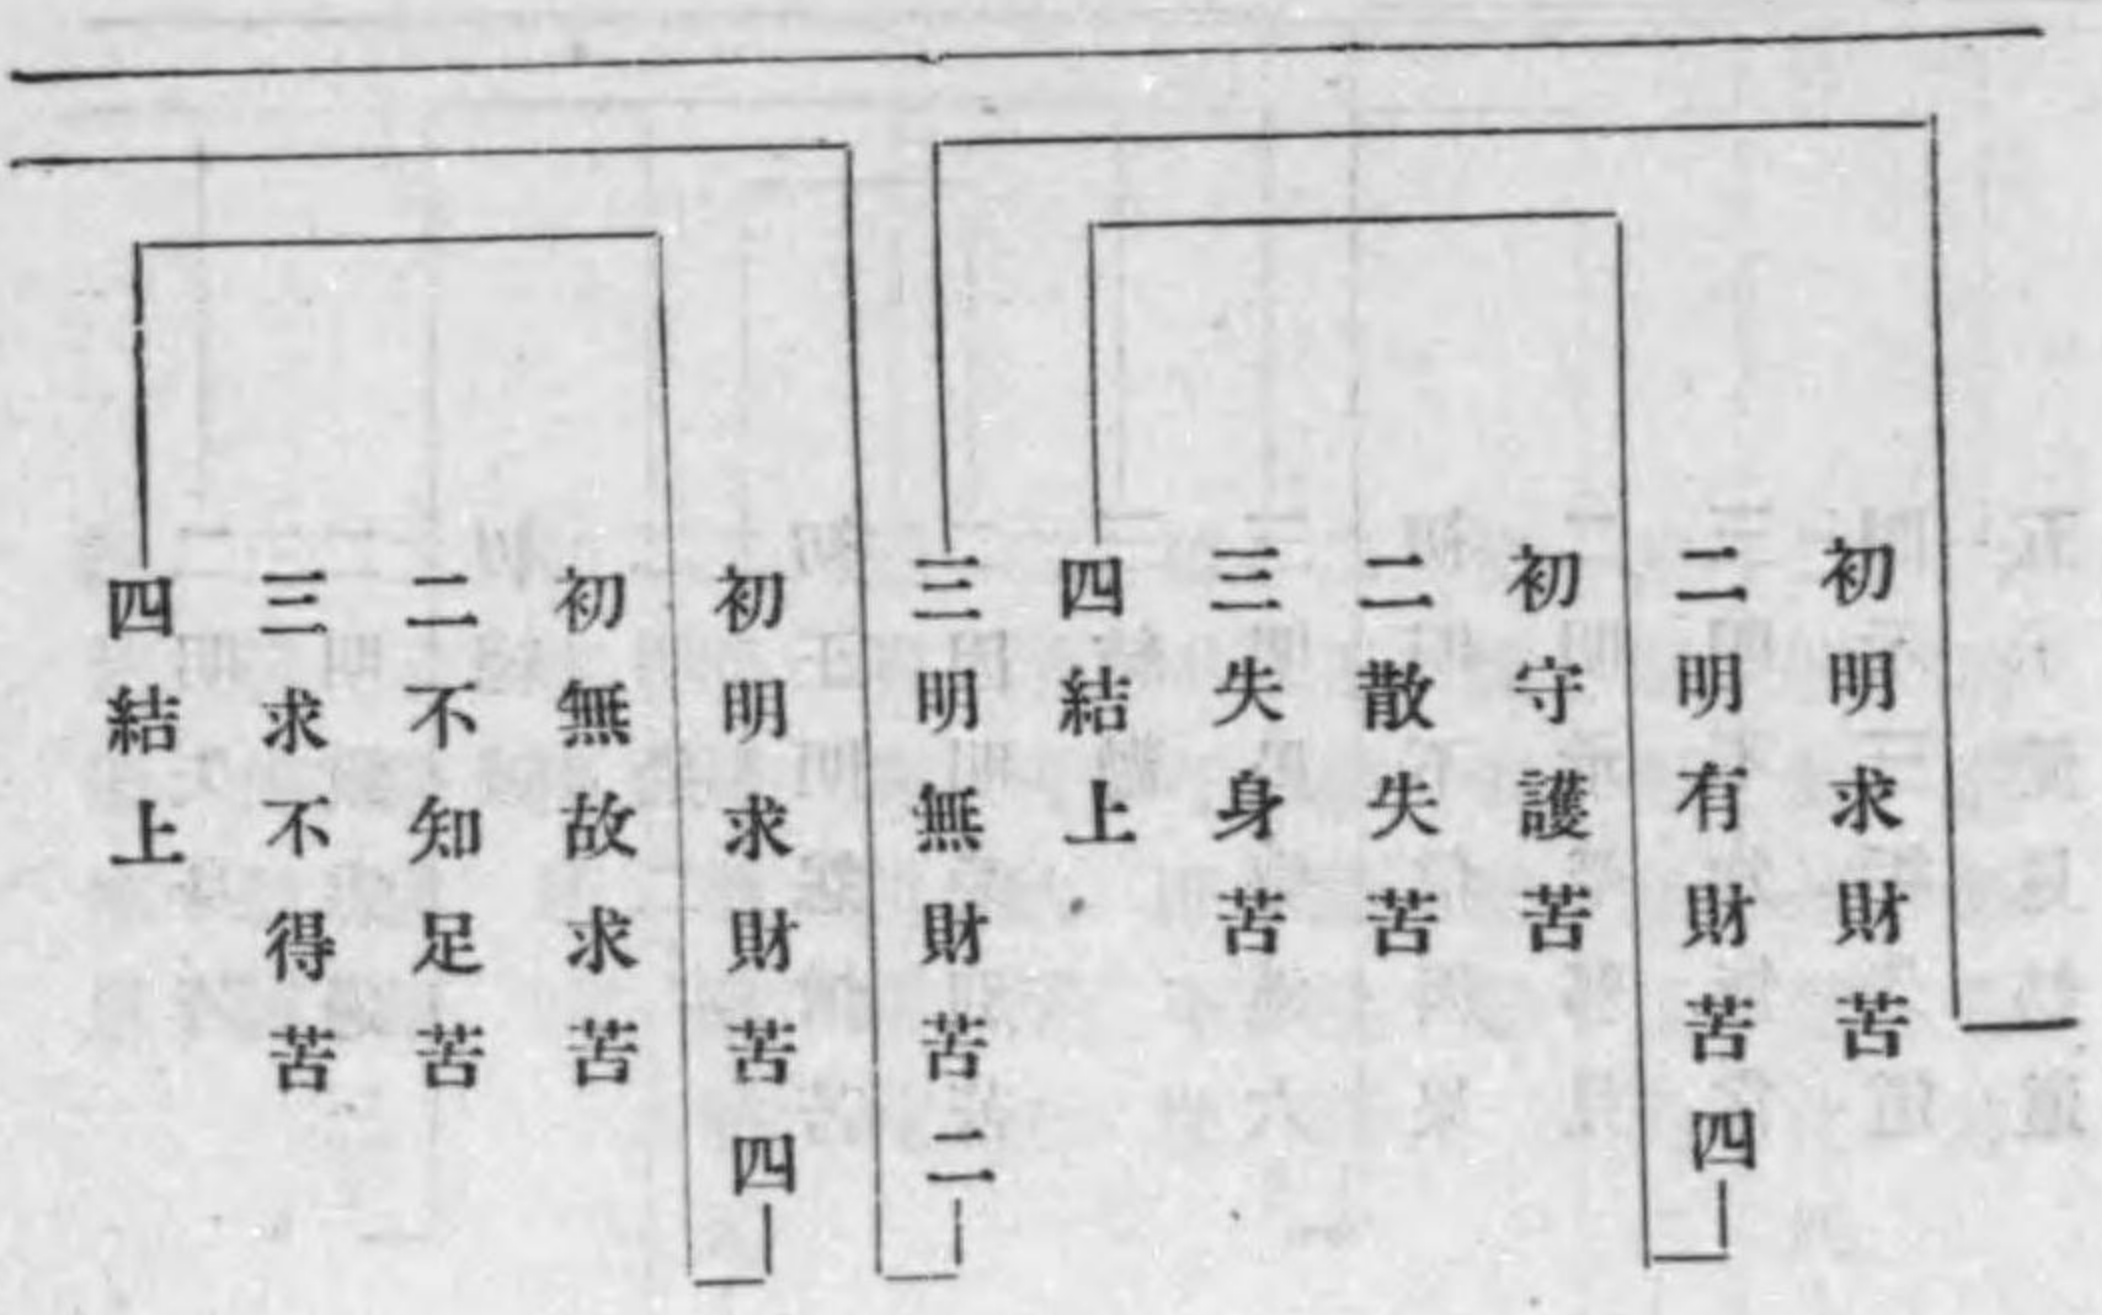 初明求財苦
二明有財苦四
初守護苦
二散失苦
三失身苦
四結上
三明無財苦二
初明求財苦四
初無故求苦
二不知足苦
三求不得苦
四結上